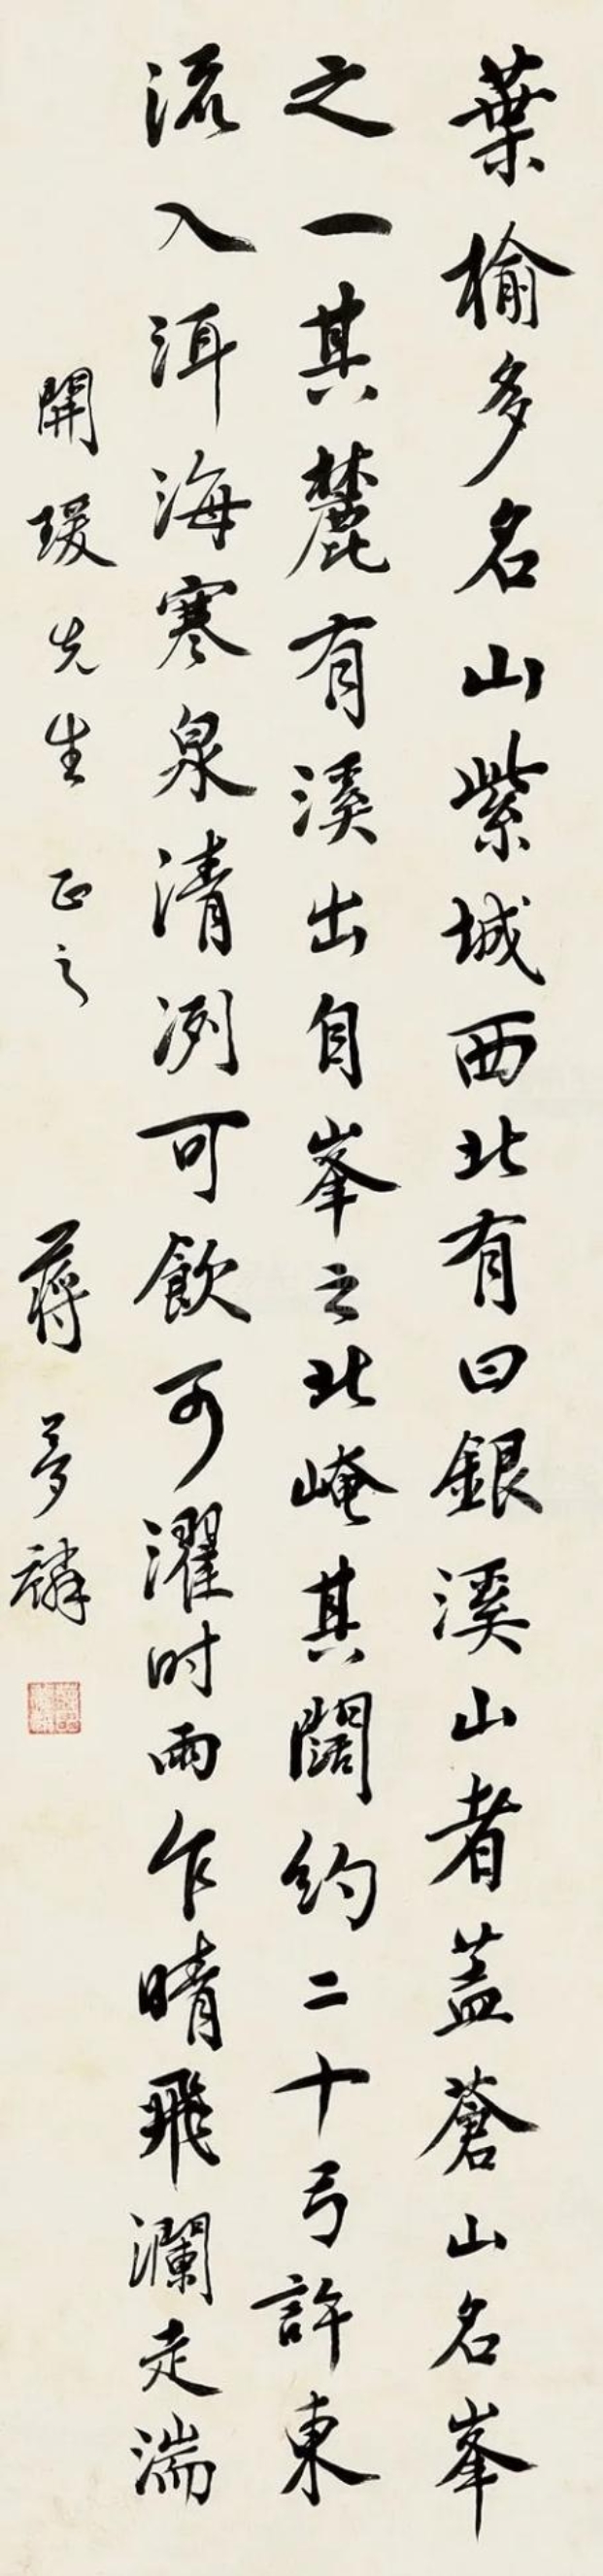 葉榆多名山紫城西北有曰銀溪山者蓋蒼山名峯
之一其麓有溪出自峯之北崦其闊約二十弓許東
流入洱海寒泉清冽可飲可濯时雨乍晴飛瀾走湍
開瑗先生正之 蔣夢麟